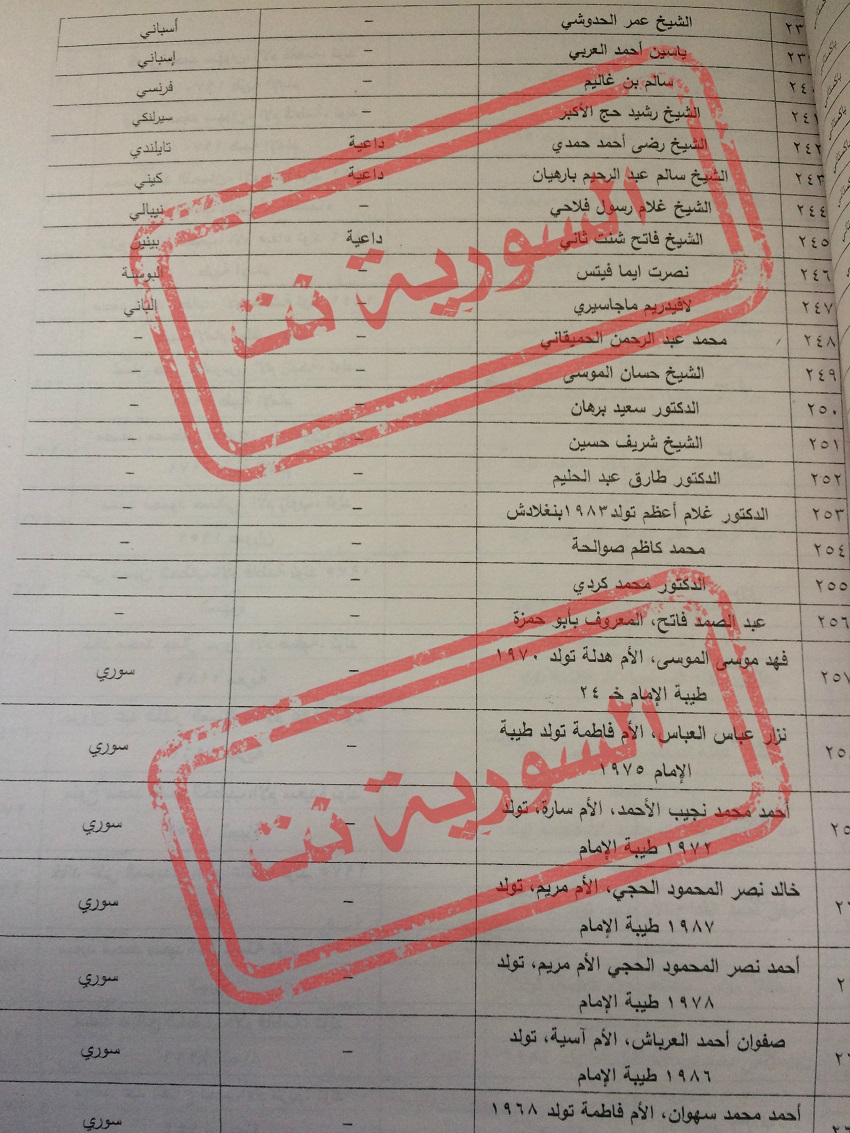 ٢٣ الشيخ عمر الحدوشي – أسباني
٢٣ ياسين أحمد العربي – إسباني
٢٤ سالم بن غاليم – فرنسي
٢٤١ الشيخ رشيد حج الأكبر – سيرلنكي
٢٤٢ الشيخ رضى أحمد حمدي داعية تايلندي
٢٤٣ الشيخ سالم عبد الرحيم بارهيان داعية كيني
٢٤٤ الشيخ غلام رسول فلاحي – نيبالي
٢٤٥ الشيخ فاتح شنت ثاني داعية بينين
٢٤٦ نصرت ايما فيتس – البوسنة
٢٤٧ لافيدريم ماجاسيري – إلباني
٢٤٨ محمد عبد الرحمن الحميقاني – –
٢٤٩ الشيخ حسان الموسى – –
٢٥٠ الدكتور سعيد برهان – –
٢٥١ الشيخ شريف حسين – –
٢٥٢ الدكتور طارق عبد الحليم – –
٢٥٣ الدكتور غلام أعظم تولد ١٩٨٣بنغلادش – –
٢٥٤ محمد كاظم صوالحة – –
٢٥٥ الدكتور محمد كردي – –
٢٥٦ عبد الصمد فاتح، المعروف بأبو حمزة – –
٢٥٧ فهد موسى الموسى، الأم هدلة تولد ١٩٧٠ – سوري
طيبة الإمام خـ ٢٤
٢٥ نزار عباس العباس، الأم فاطمة تولد طيبة – سوري
الإمام ١٩٧٥
٢٥ أحمد محمد نجيب الأحمد، الأم سارة، تولد – سوري
١٩٧٢ طيبة الإمام
٢٦ خالد نصر المحمود الحجي، الأم مريم، تولد – سوري
١٩٨٧ طيبة الإمام
٢ أحمد نصر المحمود الحجي الأم مريم، تولد – سوري
١٩٧٨ طيبة الإمام
٢٦ صفوان أحمد العرباش، الأم آسية، تولد – سوري
١٩٨٦ طيبة الإمام
٢٦ أحمد محمد سهوان، الأم فاطمة تولد ١٩٦٨ – سوري
السورية نت
السورية نت